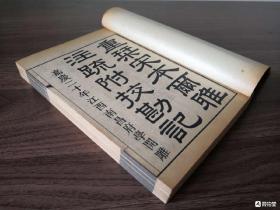 重栞宋本爾雅
注疏附挍勘記
嘉慶二十年江西南昌府學開雕